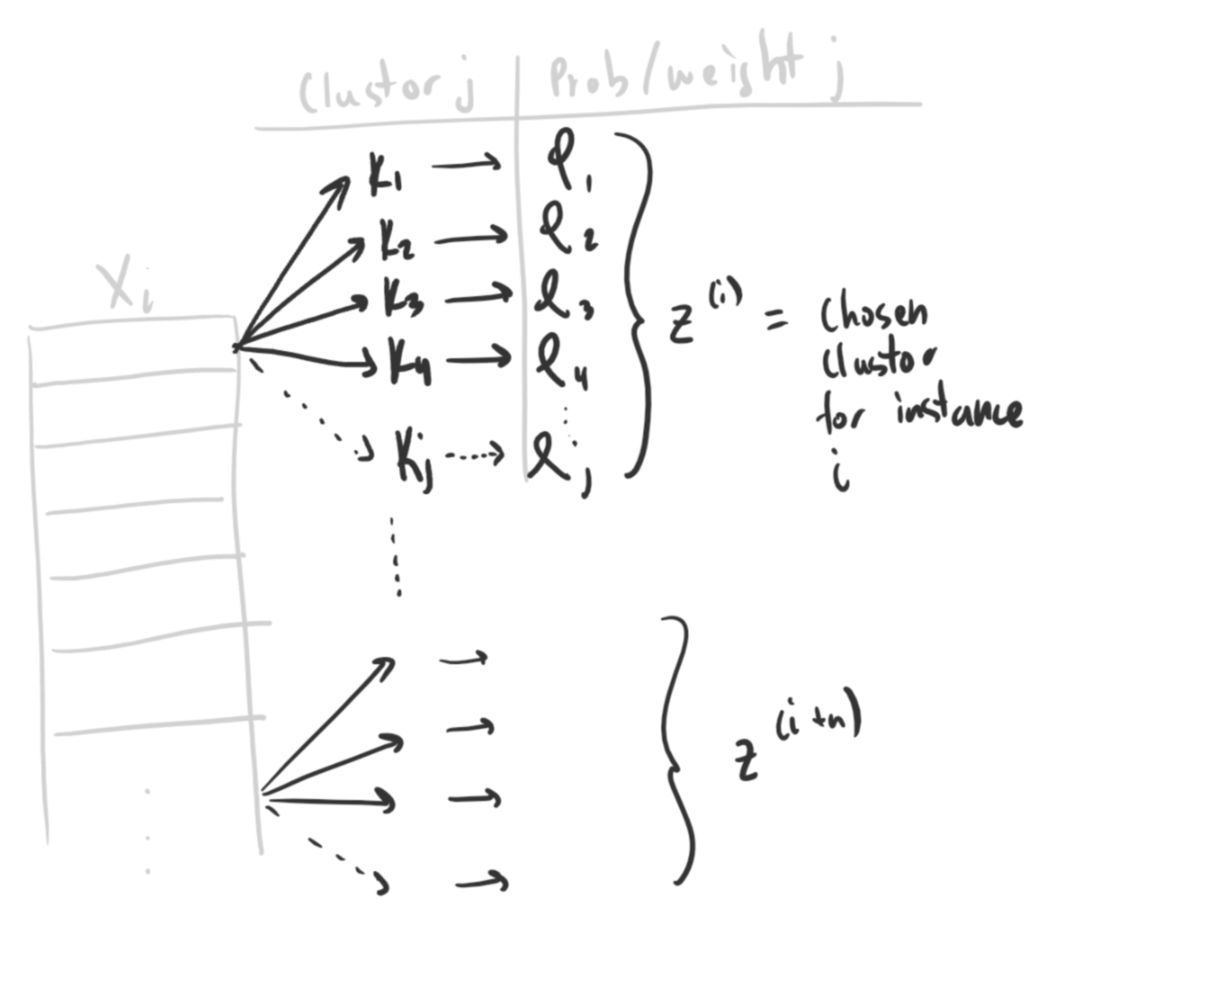 Clustor j Prob/weight j
X i
K1 → φ1
K2 → φ2
K3 → φ3
K4 → φ4
Kj → φj
z^(i) = chosen
clustor
for instance
i
z^(i+n)